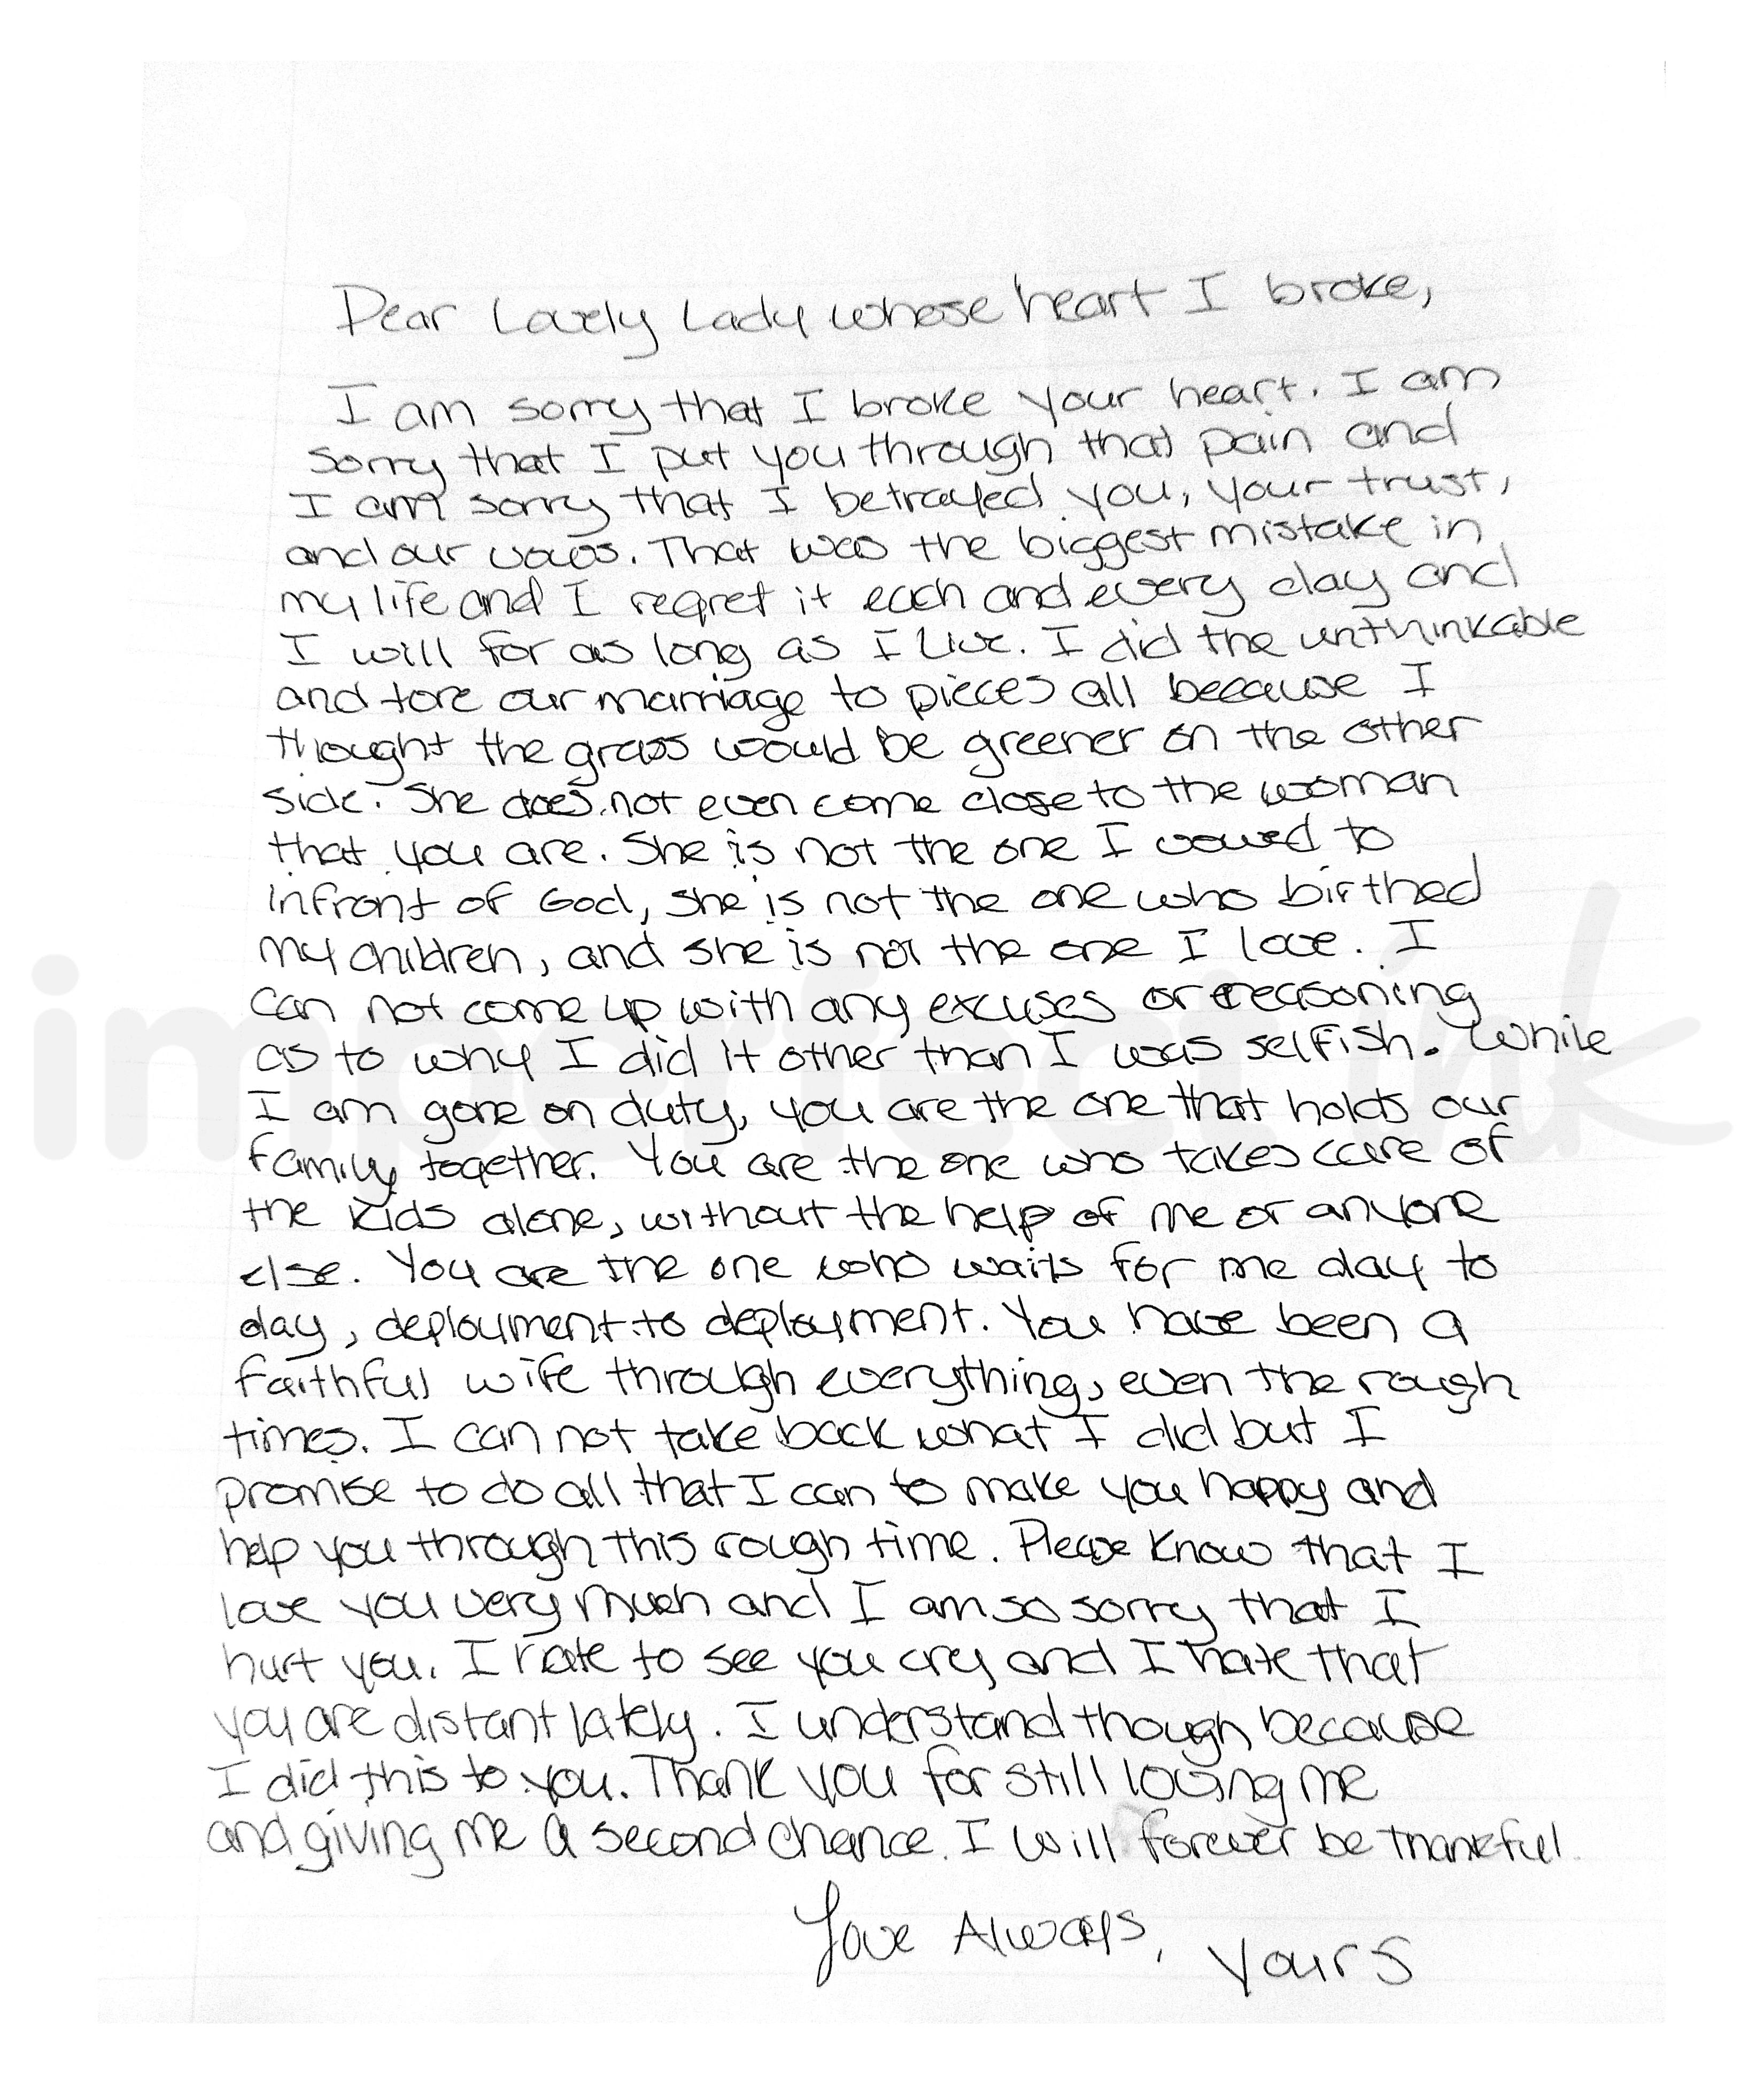 Dear Lovely Lady whose heart I broke,
I am sorry that I broke your heart. I am
sorry that I put you through that pain and
I am sorry that I betrayed you, your trust,
and our vows. That was the biggest mistake in
my life and I regret it each and every day and
I will for as long as I live. I did the unthinkable
and tore our marriage to pieces all because I
thought the grass would be greener on the other
side. She does not even come close to the woman
that you are. She is not the one I vowed to
infront of God, she is not the one who birthed
my children, and she is not the one I love. I
can not come up with any excuses or reasoning
as to why I did it other than I was selfish. While
I am gone on duty, you are the one that holds our
family together. You are the one who takes care of
the kids alone, without the help of me or anyone
else. You are the one who waits for me day to
day, deployment to deployment. You have been a
faithful wife through everything, even the rough
times. I can not take back what I did but I
promise to do all that I can to make you happy and
help you through this rough time. Please know that I
love you very much and I am so sorry that I
hurt you. I hate to see you cry and I hate that
you are distant lately. I understand though because
I did this to you. Thank you for still loving me
and giving me a second chance. I will forever be thankful.
Love Always, Yours
imperfect ink